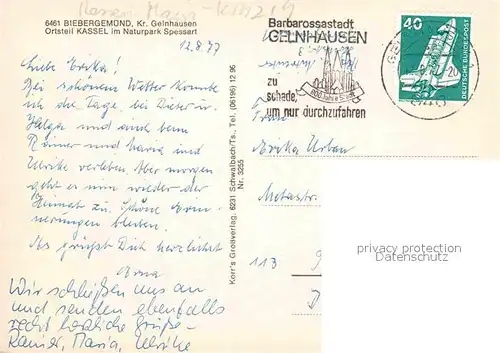 6461 BIEBERGEMOND, Kr. Gelnhausen
Ortsteil KASSEL im Naturpark Spessart
12.8.77
Liebe Erika!
Bei schönem Wetter konnte
ich die Tage, bei Dieter u.
Helga und auch beim
Rainer und Maria und
Ulrike verleben. Aber morgen
geht es nun wieder der
Heimat zu. Schöne Erin-
nerungen bleiben.
Es grüßt Dich herzlichst
Erna
Wir schließen uns an
und senden ebenfalls
recht herzliche Grüße-
Rainer, Maria, Ulrike
Kerr's Groaverlag, 6231 Schwalbach/Ts., Tel. (06196) 12 96
Nr. 3255
Barbarossastadt
GELNHAUSEN
800 Jahre Stadt
zu
schade,
um nur durchzufahren
40
DEUTSCHE BUNDESPOST
Frau
Erika Urban
Motastr.
113
privacy protection